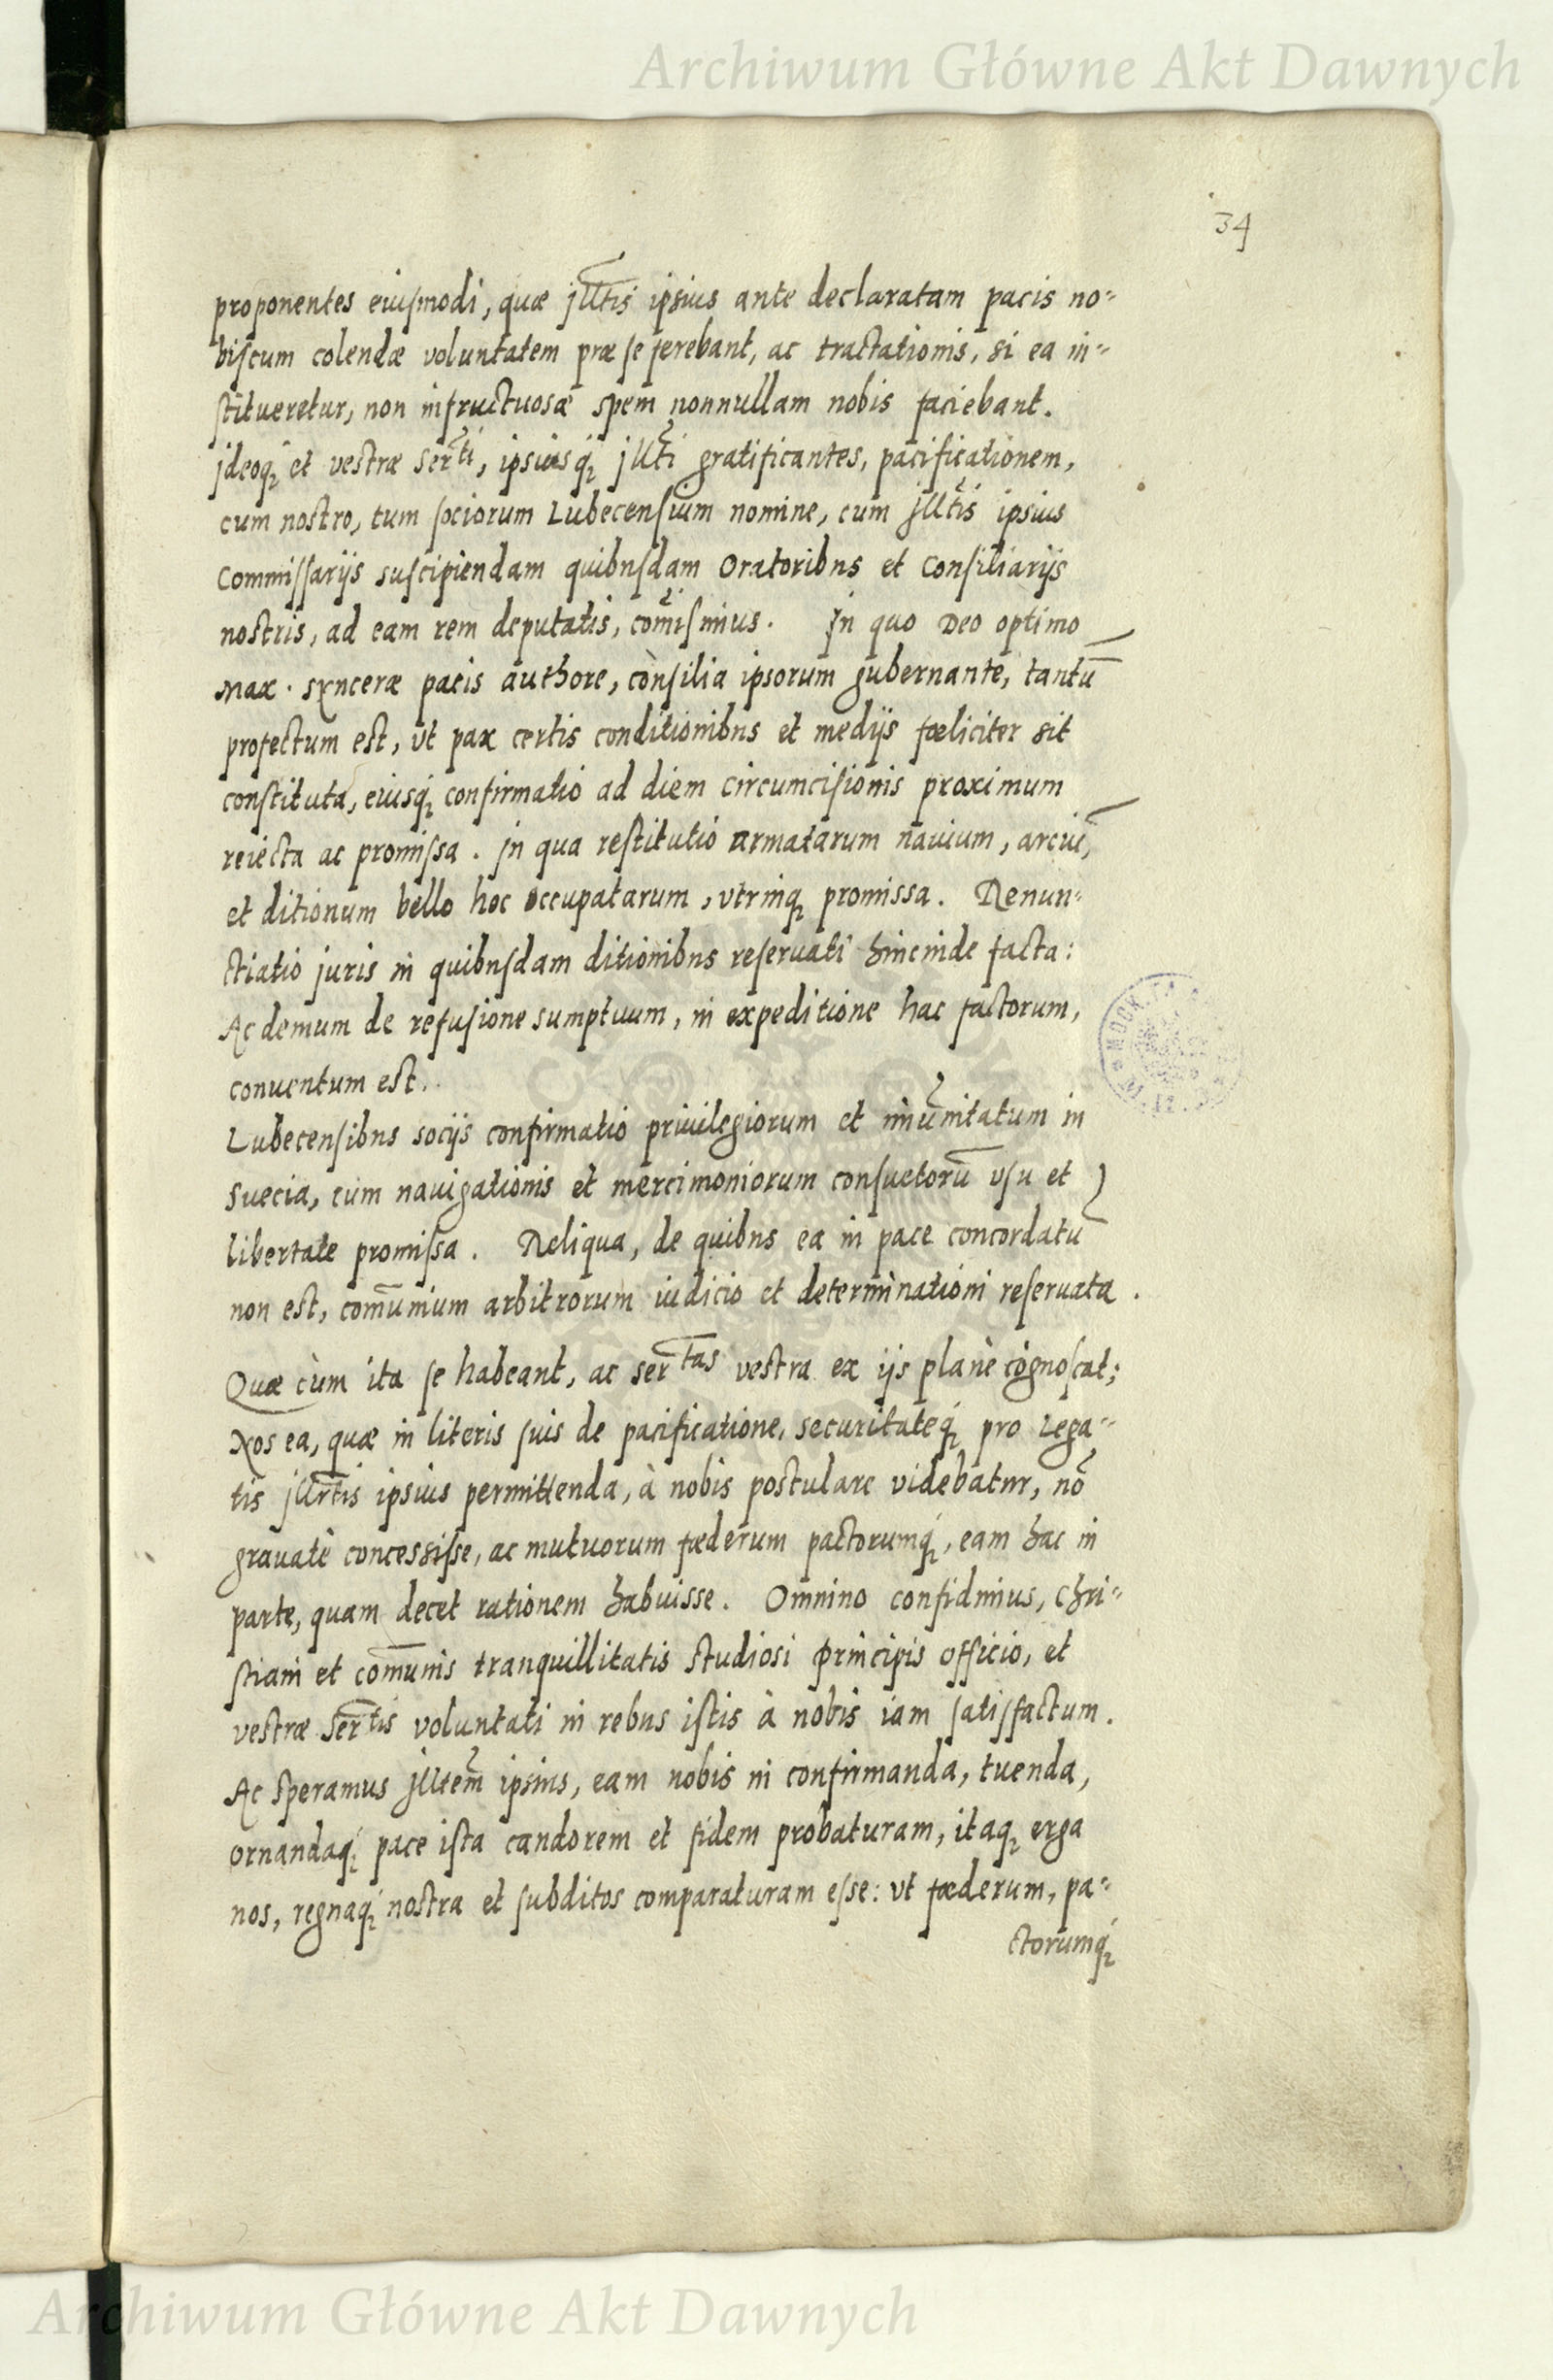 Archiwum Główne Akt Dawnych
34
proponentes eiusmodi, quæ jlltis ipsius ante declaratam pacis no=
biscum colendæ voluntatem præ se ferebant, ac tractationis, si ea in=
stitueretur, non infructuosæ spem nonnullam nobis faciebant.
jdeoq́ȝ et vestræ Serti, ipsiusq́ȝ jllti gratificantes, pacificationem,
cum nostro, tum sociorum Lubecensium nomine, cum jlltis ipsius
Commissarijs suscipiendam quibusdam Oratoribus et Consiliarijs
nostris, ad eam rem deputatis, com̄isimus. In quo Deo optimo
Max. synceræ pacis authore, consilia ipsorum gubernante, tantū
profectum est, vt pax certis conditionibus et medijs fœliciter sit
constituta, eiusq́ȝ confirmatio ad diem Circumcisionis proximum
reiecta ac promissa. In qua restitutio armatarum nauium, arciū,
et ditionum bello hoc occupatarum, vtrinqȝ promissa. Renun=
ctiatio juris in quibusdam ditionibus reseruati hincinde facta:
Ac demum de refusione sumptuum, in expeditione hac factorum,
conuentum est.
Lubecensibus socijs confirmatio priuilegiorum et im̄unitatum in
Suecia, cum nauigationis et mercimoniorum consuetorū vsu et
libertate promissa. Reliqua, de quibus ea in pace concordatū
non est, com̄unium arbitrorum iudicio et determinationi reseruata.
Quæ cùm ita se habeant, ac Sertas vestra ex ijs planè cognoscat;
Nos ea, quæ in literis suis de pacificatione, securitateq́ȝ pro Lega=
tis jllrtis ipsius permittenda, à nobis postulare videbatur, nō
grauatè concessisse, ac mutuorum fœderum pactorumq́ȝ, eam hac in
parte, quam decet rationem habuisse. Omnino confidimus, Chri=
stiani et com̄unis tranquillitatis studiosi Principis officio, et
vestræ Sertis voluntati in rebus istis à nobis iam satisfactum.
Ac speramus jlltem ipsius, eam nobis in confirmanda, tuenda,
ornandaq́ȝ pace ista candorem et fidem probaturam, itaqȝ erga
nos, regnaq́ȝ nostra et subditos comparaturam esse: vt fœderum, pa=
ctorumq́ȝ
Archiwum Główne Akt Dawnych